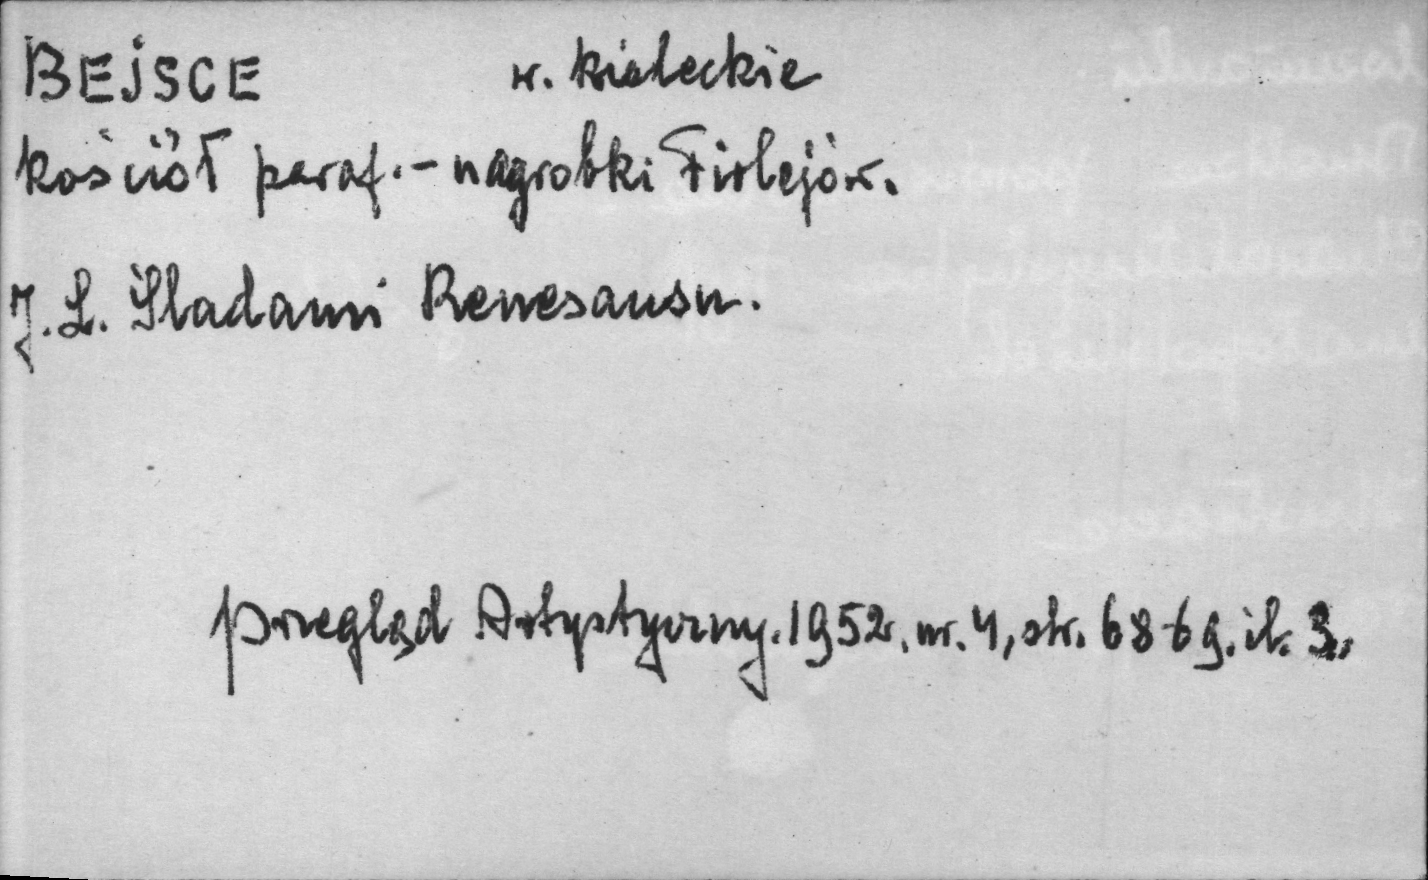 BEJSCE w. kieleckie
kościół paraf. - nagrobki Firlejów.
J. L. Śladami Renesansu.
Przegląd Artystyczny. 1952r. nr. 4, str. 68-69. il. 3.